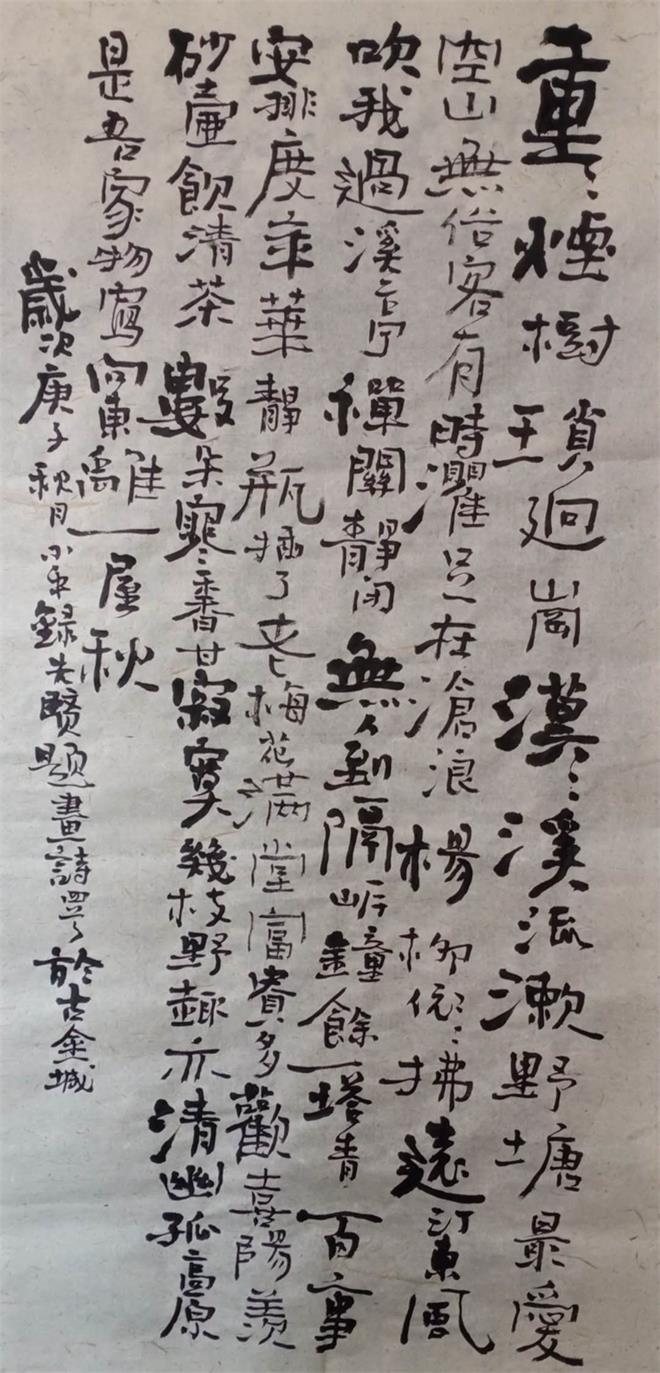 重〻煙樹瑣廻崗漠〻溪流漱野塘最愛
空山無俗客有時濯足在滄浪楊柳依〻拂遠汀東風
吹我過溪亭禪關靜閉無人到隔岸鐘餘一塔青百事
安排度年華靜瓶插了老梅花滿堂富貴多歡喜陽羨
砂壺飲清茶數朵寒香甘寂寞幾枝野趣亦清幽孤高原
是吾家物寫向東籬一屋秋
歲次庚子秋月小平錄先賢題畫詩於古金城